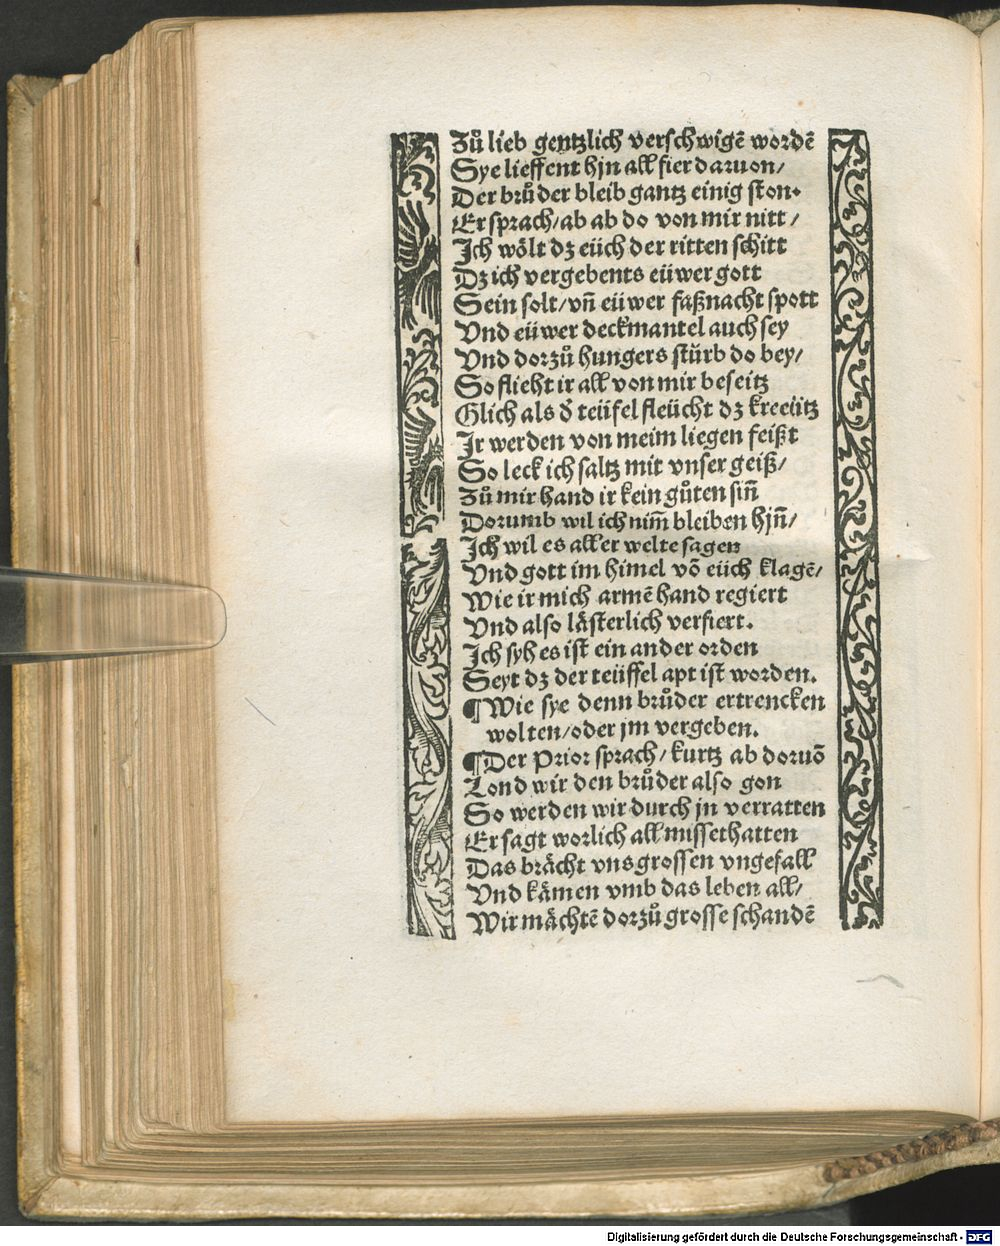 Zů lieb gentzlich verschwigē wordē
Sye lieffent hjn all fier daruon/
Der brůder bleib gantz einig ston.
Er sprach/ab ab do von mir nitt/
Ich wölt dz eüch der ritten schitt
Dz ich vergebents eüwer gott
Sein solt/vñ eüwer faßnacht spott
Vnd eüwer deckmantel auch sey
Vnd dorzů hungers stürb do bey/
So flieht ir all von mir beseitz
Glich als d̕ teüfel fleücht dz kreeütz
Ir werden von meim liegen feißt
So leck ich saltz mit vnser geiß/
Zů mir hand ir kein gůten siñ
Dorumb wil ich nim̄ bleiben hjñ/
Ich wil es aller welte sagen
Vnd gott im himel vō eüch klagē/
Wie ir mich armē hand regiert
Vnd also lästerlich verfiert.
Ich syh es ist ein ander orden
Seyt dz der teüffel apt ist worden.
¶Wie sye denn brůder ertrencken
wolten/oder jm vergeben.
¶Der Prior sprach/kurtz ab doruō
Lond wir den brůder also gon
So werden wir durch jn verratten
Er sagt worlich all missethatten
Das brächt vns grossen vngefall
Vnd kämen vmb das leben all/
Wir mächtē dorzů grosse schandē
Digitalisierung gefördert durch die Deutsche Forschungsgemeinschaft - DFG